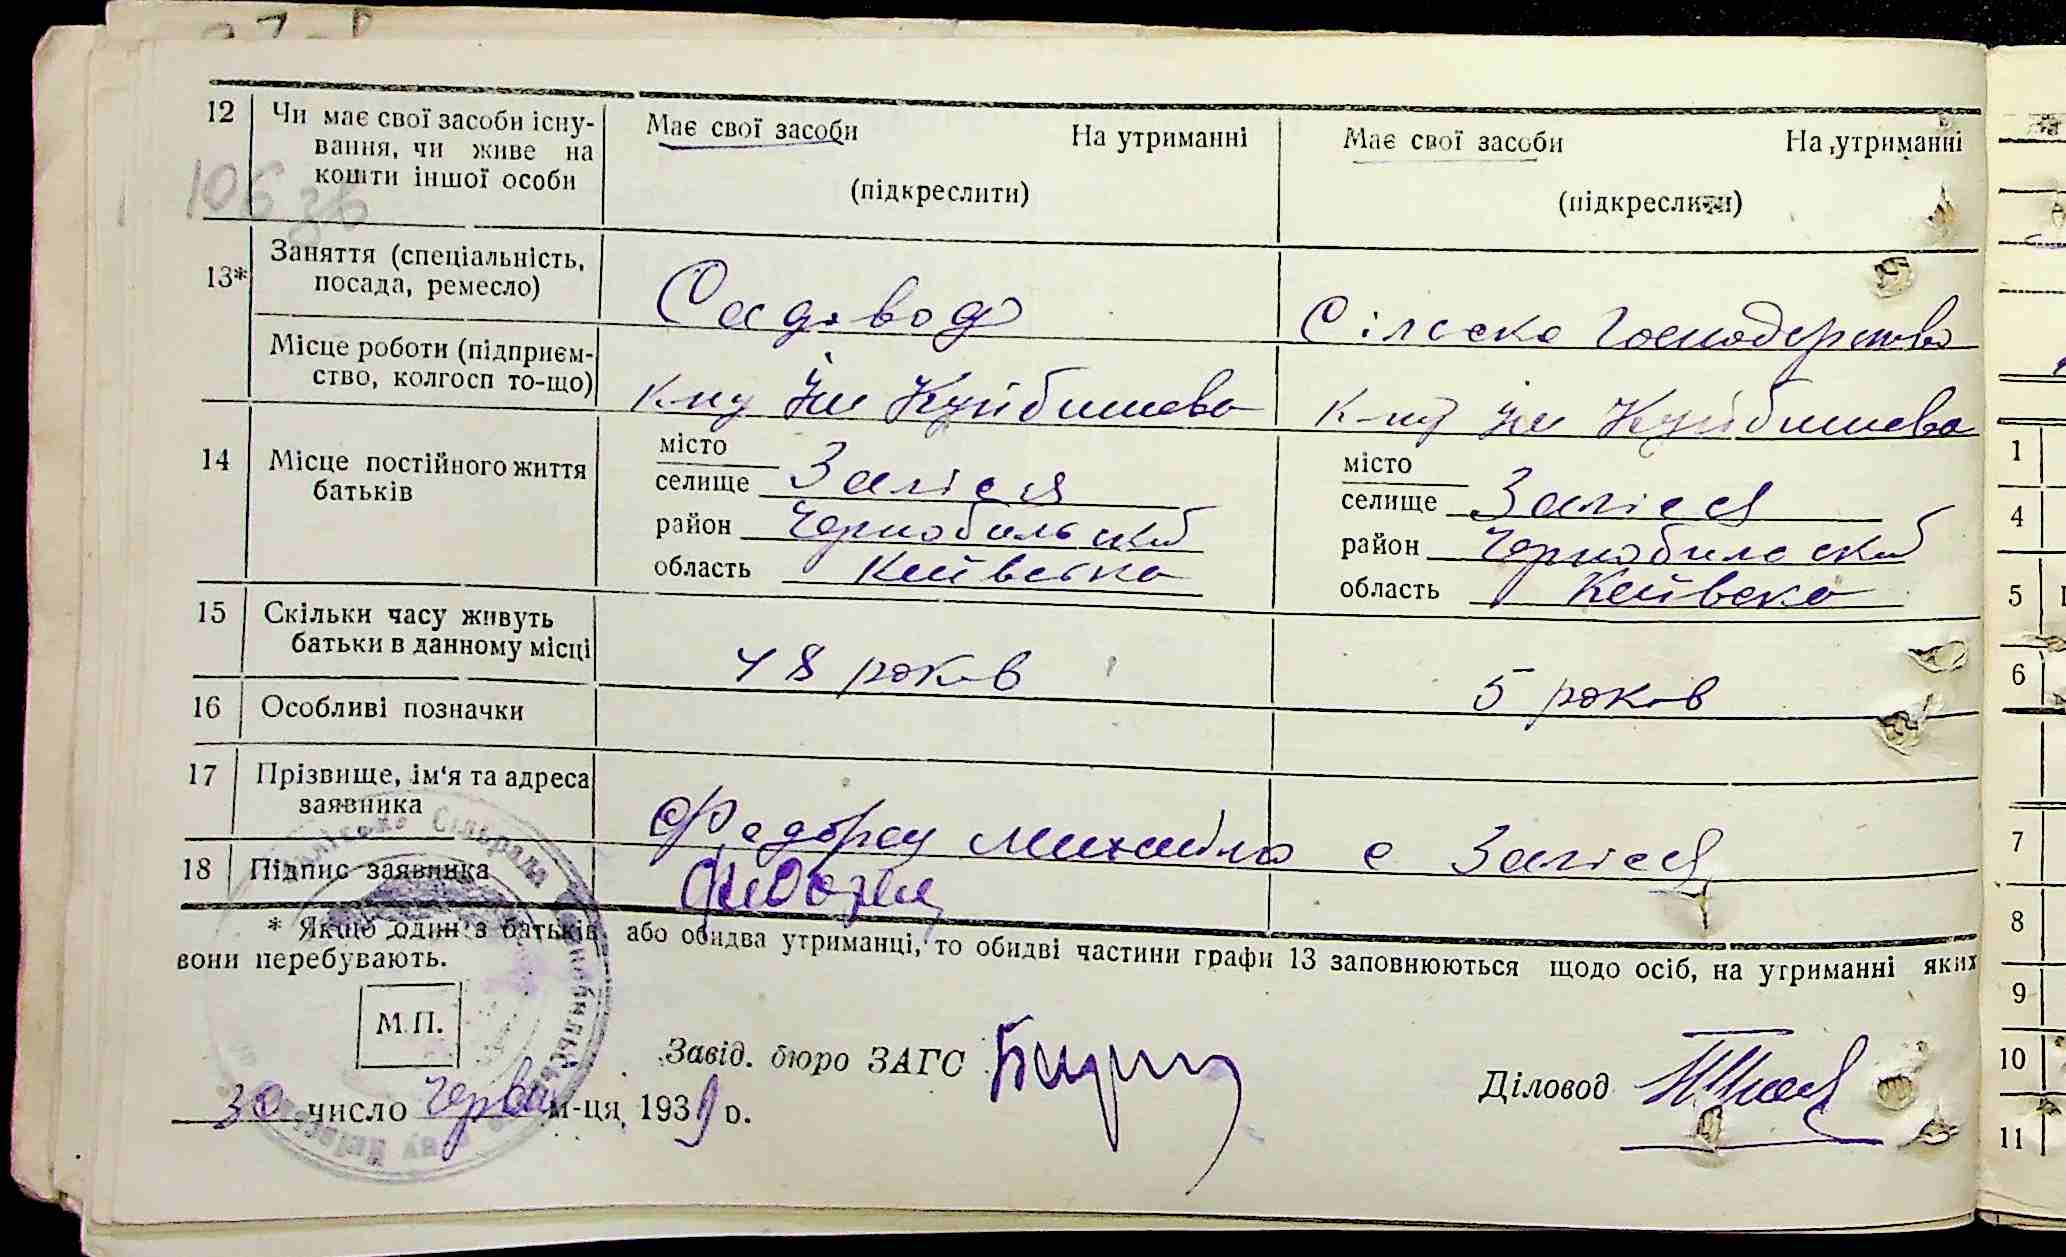 12 Чи має свої засоби існу-
вання, чи живе на
кошти іншої особи
Має свої засоби На утриманні
(підкреслити)
Має свої засоби На утриманні
(підкреслити)
106 36
13* Заняття (спеціальність,
посада, ремесло)
Садовод
Сілско Господарство
Місце роботи (підприєм-
ство, колгосп то-що)
К-пу Ім Куйбишева
К-пу Ім Куйбишева
14 Місце постійного життя
батьків
місто
селище Залісся
район Чернобильский
область Киівська
місто
селище Залісся
район Чернобилский
область Киівска
15 Скільки часу живуть
батьки в данному місці
48 років
5 років
16 Особливі позначки
17 Прізвище, ім'я та адреса
заявника
Федорец Михайло с Залісся
18 Підпис заявника
* Якщо один з батьків, або обидва утриманці, то обидві частини графи 13 заповнюються щодо осіб, на утриманні яких
вони перебувають.
М.П.
Завід. бюро ЗАГС
Діловод
30 число Червня м-ця, 1939 р.
1
4
5
6
7
8
9
10
11